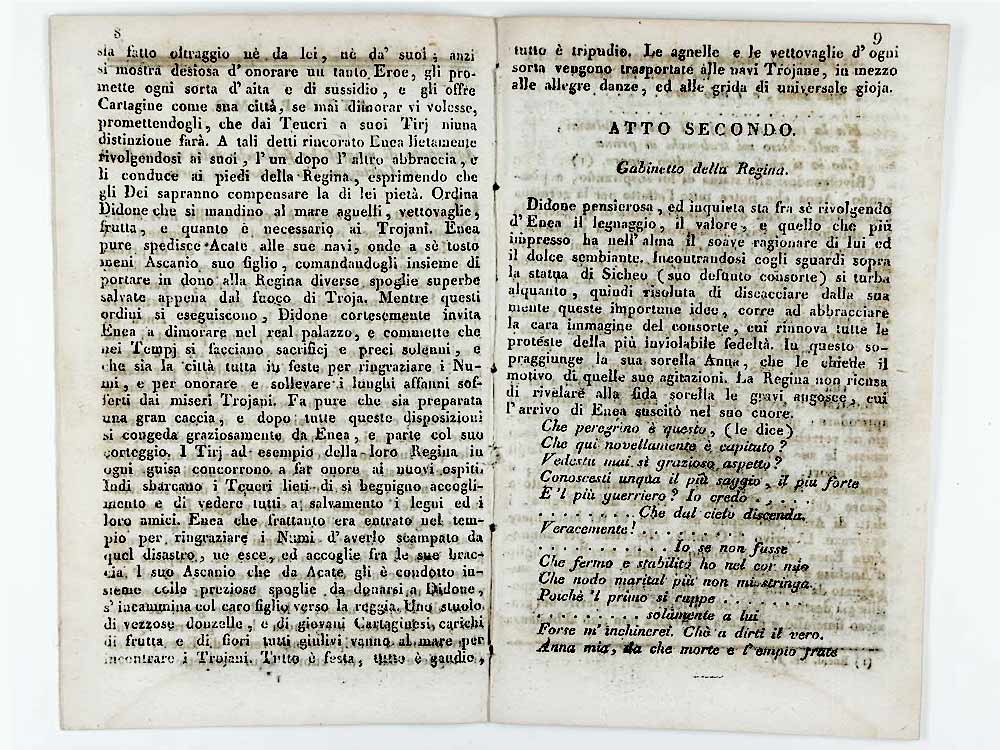 8
sia fatto oltraggio nè da lei, nè da' suoi; anzi
si mostra desiosa d'onorare un tanto Eroe, gli pro-
mette ogni sorta d'aita e di sussidio, e gli offre
Cartagine come sua città, se mai dimorar vi volesse,
promettendogli, che dai Teucri a suoi Tirj niuna
distinzione farà. A tali detti rincorato Enea lietamente
rivolgendosi ai suoi, l'un dopo l'altro abbraccia, e
li conduce ai piedi della Regina, esprimendo che
gli Dei sapranno compensare la di lei pietà. Ordina
Didone che si mandino al mare agnelli, vettovaglie,
frutta, e quanto è necessario ai Trojani. Enea
pure spedisce Acate alle sue navi, onde a sè tosto
meni Ascanio suo figlio, comandandogli insieme di
portare in dono alla Regina diverse spoglie superbe
salvate appena dal fuoco di Troja. Mentre questi
ordini si eseguiscono, Didone cortesemente invita
Enea a dimorare nel real palazzo, e commette che
nei Tempj si facciano sacrificj e preci solenni, e
che sia la città tutta in feste per ringraziare i Nu-
mi, e per onorare e sollevare i lunghi affanni sof-
ferti dai miseri Trojani. Fa pure che sia preparata
una gran caccia, e dopo tutte queste disposizioni
si congeda graziosamente da Enea, e parte col suo
corteggio. I Tirj ad esempio della loro Regina in
ogni guisa concorrono a far onore ai nuovi ospiti.
Indi sbarcano i Teucri lieti di sì begnigno accogli-
mento e di vedere tutti a salvamento i legni ed i
loro amici. Enea che frattanto era entrato nel tem-
pio per ringraziare i Numi d'averlo scampato da
quel disastro, ne esce, ed accoglie fra le sue brac-
cia l suo Ascanio che da Acate gli è condotto in-
sieme colle preziose spoglie da donarsi a Didone,
s'incammina col caro figlio verso la reggia. Uno stuolo
di vezzose donzelle, e di giovani Cartaginesi carichi
di frutta e di fiori tutti giulivi vanno al mare per
incontrare i Trojani. Tutto è festa, tutto è gaudio,
9
tutto è tripudio. Le agnelle e le vettovaglie d'ogni
sorta vengono trasportate alle navi Trojane, in mezzo
alle allegre danze, ed alle grida di universale gioja.
ATTO SECONDO.
Gabinetto della Regina.
Didone pensierosa, ed inquieta sta fra sè rivolgendo
d'Enea il legnaggio, il valore, e quello che più
impresso ha nell'alma il soave ragionare di lui ed
il dolce sembiante. Incontrandosi cogli sguardi sopra
la statua di Sicheo (suo defunto consorte) si turba
alquanto, quindi risoluta di discacciare dalla sua
mente queste importune idee, corre ad abbracciare
la cara immagine del consorte, cui rinnova tutte le
proteste della più inviolabile fedeltà. In questo so-
praggiunge la sua sorella Anna, che le chiede il
motivo di quelle sue agitazioni. La Regina non ricusa
di rivelare alla fida sorella le gravi angosce, cui
l'arrivo di Enea suscitò nel suo cuore.
Che peregrino è questo, (le dice)
Che qui novellamente è capitato?
Vedestu mai sì grazioso aspetto?
Conoscesti unqua il più saggio, il più forte
E 'l più guerriero? Io credo . . . . .
. . . . . . . . . Che dal cielo discenda.
Veracemente! . . . . . . . . . .
. . . . . . . . . . . . Io se non fusse
Che fermo e stabilito ho nel cor mio
Che nodo marital più non mi stringa.
Poichè 'l primo si ruppe . . . . . . . .
. . . . . . . . . . solamente a lui
Forse m'inchinerei. Chè a dirti il vero.
Anna mia, da che morte e l'empio frate